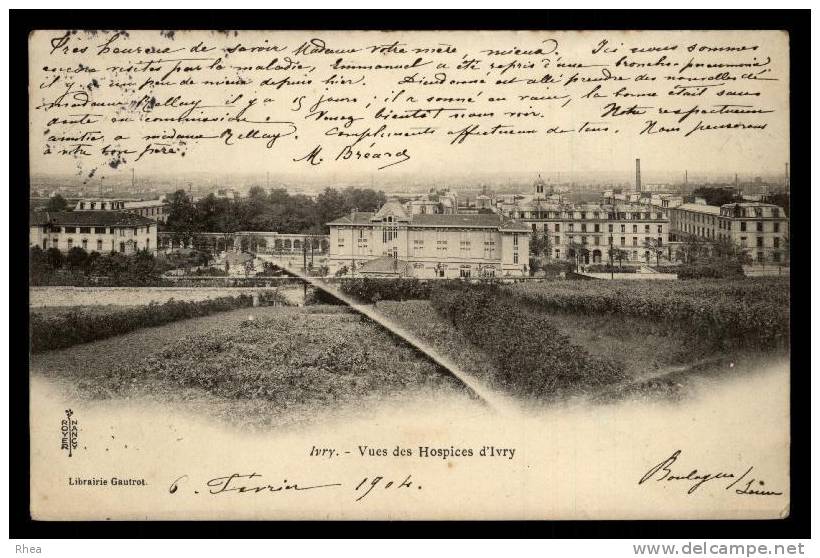 Très heureux de savoir Madame votre mère mieux. Ici nous sommes
encore visités par la maladie, Emmanuel a été repris d'une broncho-pneumonie
il y a un peu de mieux depuis hier. Dieudonné est allé prendre des nouvelles de
madame Rellay il y a 15 jours ; il a sonné en vain, la bonne était sans
doute en commission. Venez bientôt nous voir. Notre respectueux
amitié à madame Rellay. Compliments affectueux de tous. Nous pensons
à votre bon père.
M. Bréard
ROYER NANCY
Ivry. - Vues des Hospices d'Ivry
Librairie Gautrot.
6 Février 1904.
Boulogne/Seine
Rhea
www.delcampe.net